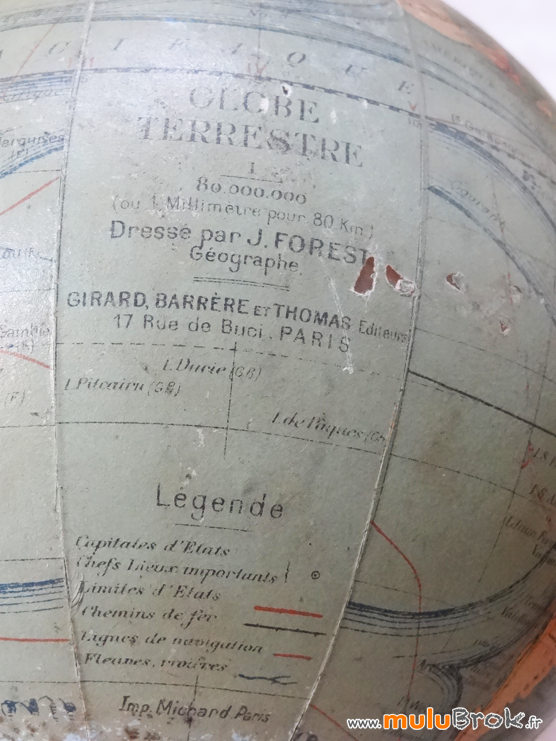 CIFIQUE
GLOBE
TERRESTRE
1
80.000.000
(ou 1 Millimètre pour 80 Km.)
Dressé par J. FOREST
Géographe
GIRARD, BARRÈRE ET THOMAS Editeurs
17 Rue de Buci. PARIS
I. Ducie (GB)
I. Pitcairn (GB)
I. de Pâques
Légende
Capitales d'Etats
Chefs Lieux importants
Limites d'Etats
Chemins de fer
Lignes de navigation
Fleuves, rivières
Imp. Michard Paris
www.muluBrok.fr